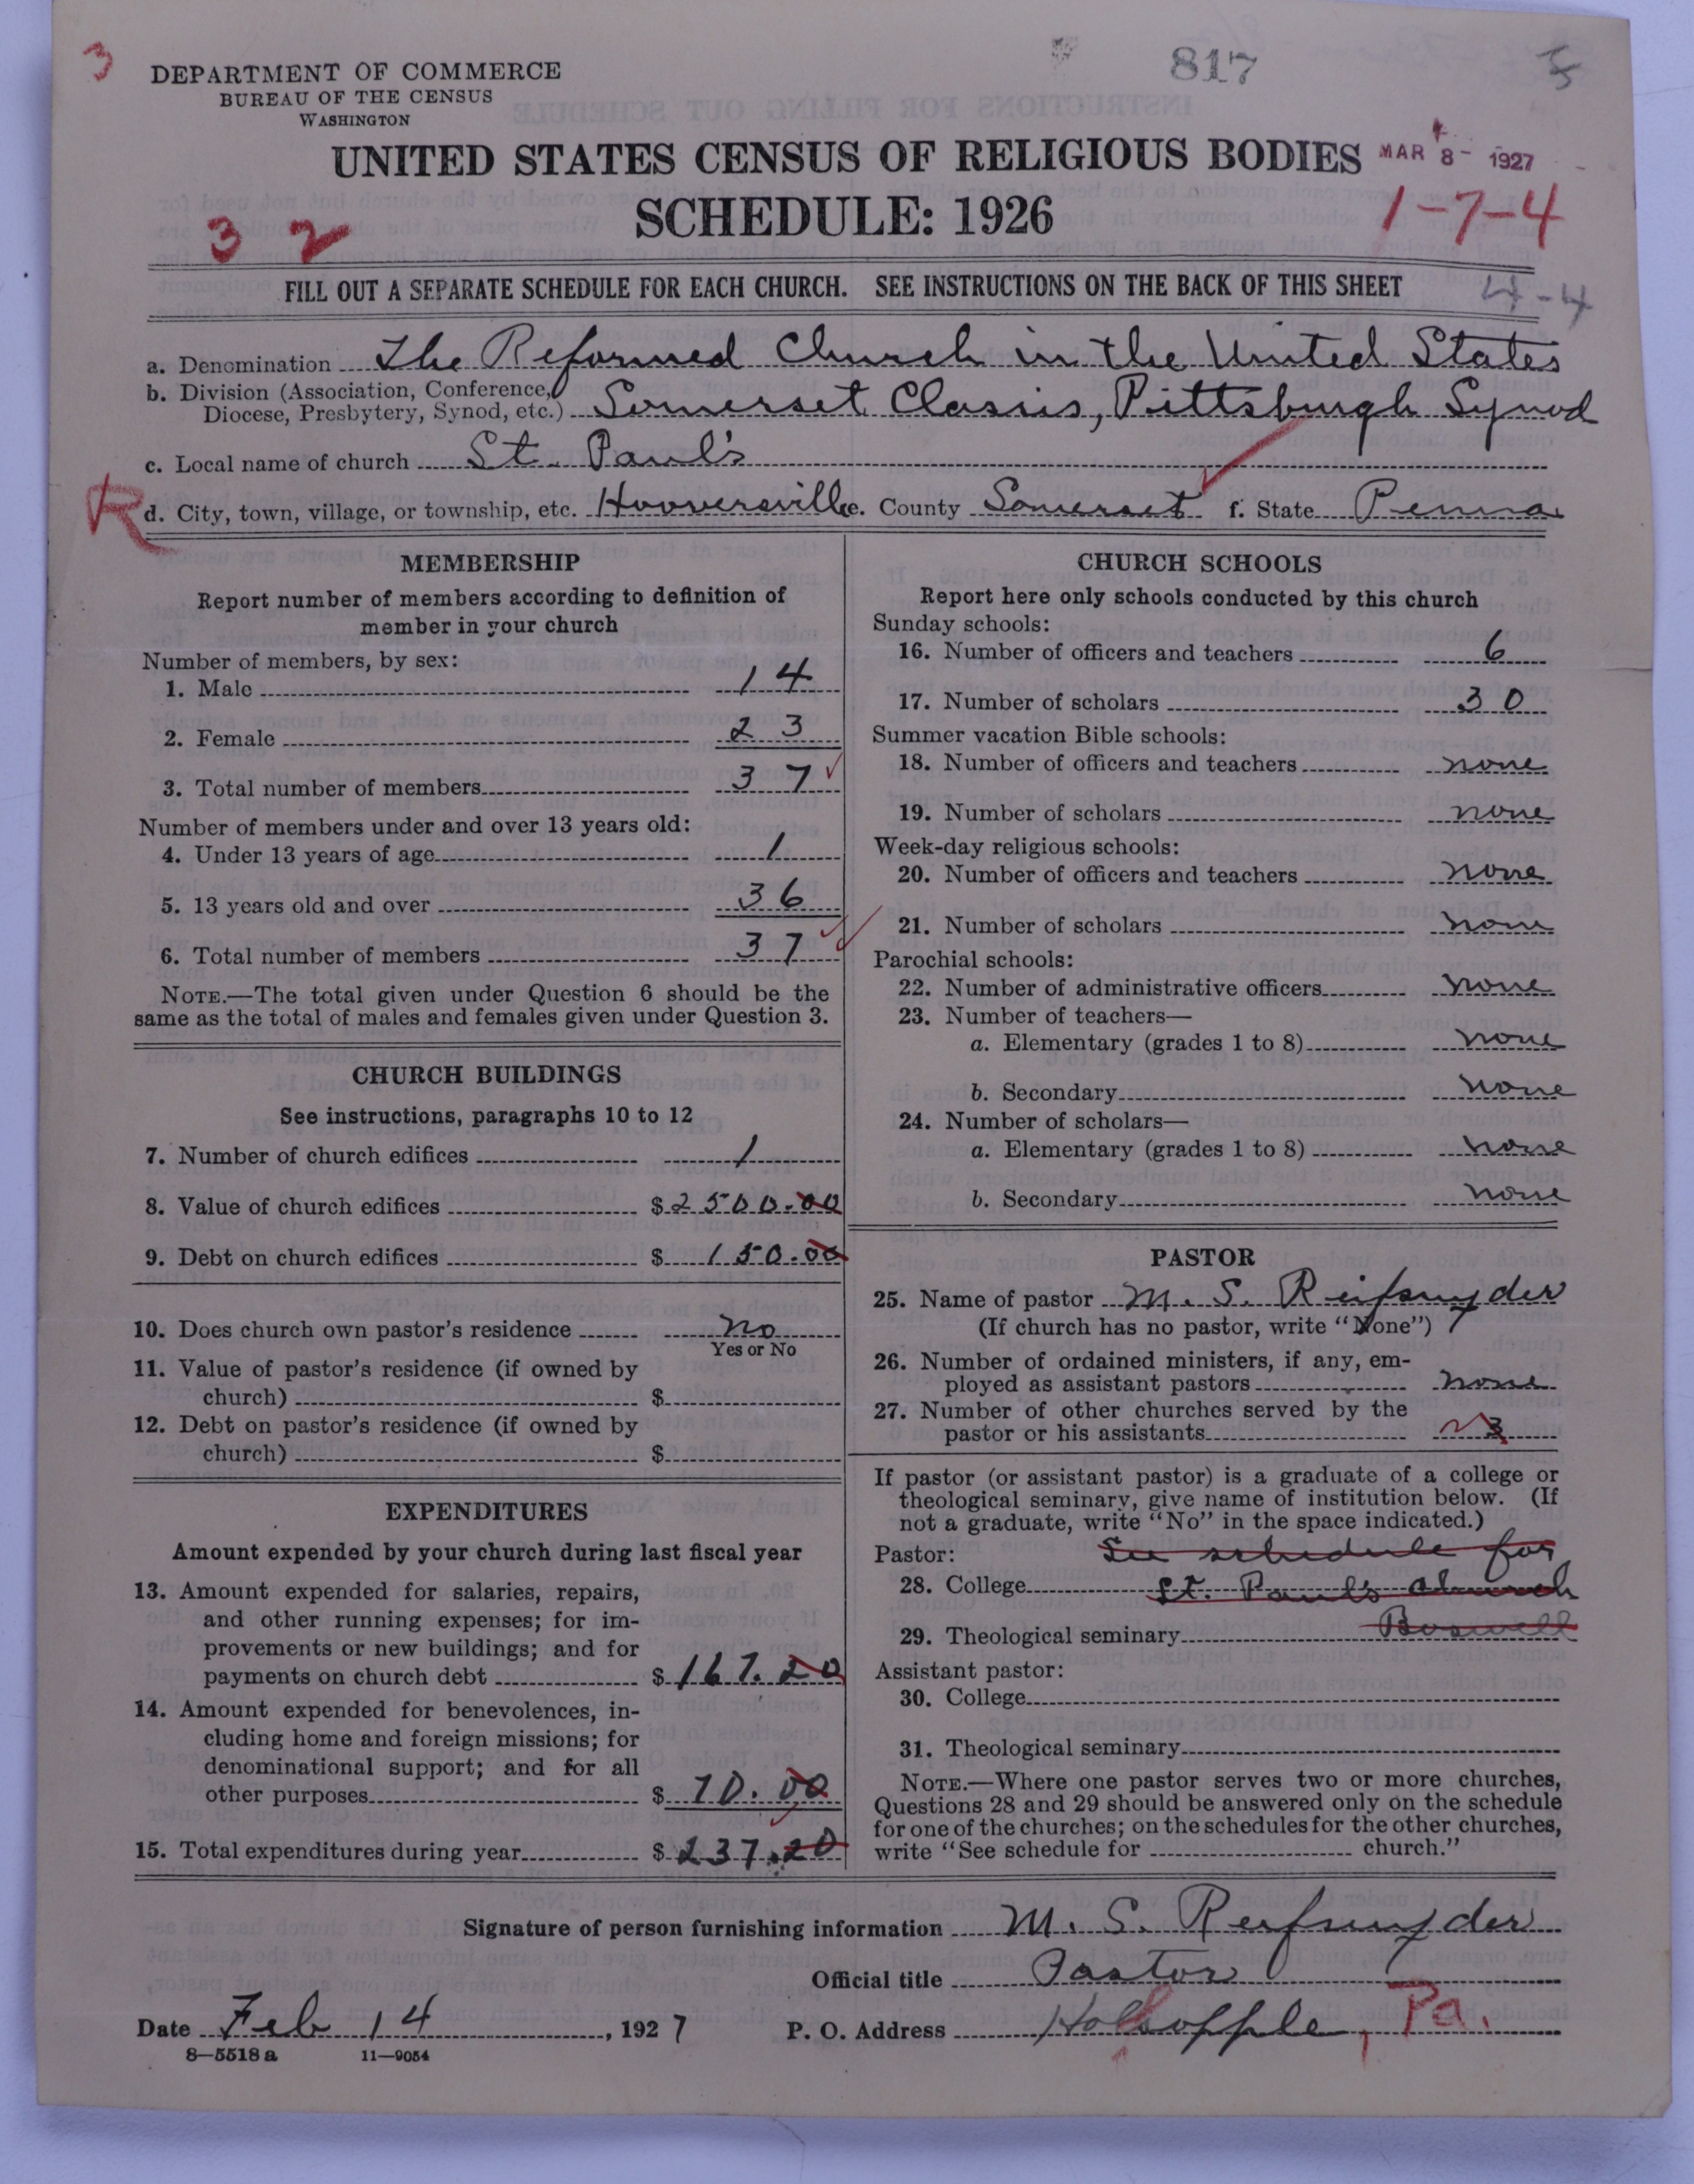 3
817
DEPARTMENT OF COMMERCE
BUREAU OF THE CENSUS
WASHINGTON
UNITED STATES CENSUS OF RELIGIOUS BODIES
MAR 8 - 1927
SCHEDULE: 1926
3 2
1-7-4
FILL OUT A SEPARATE SCHEDULE FOR EACH CHURCH. SEE INSTRUCTIONS ON THE BACK OF THIS SHEET
4-4
a. Denomination The Reformed Church in the United States
b. Division (Association, Conference, Diocese, Presbytery, Synod, etc.) Somerset Classis, Pittsburgh Synod
c. Local name of church St. Paul's
R
d. City, town, village, or township, etc. Hooversville e. County Somerset f. State Penna.
MEMBERSHIP
Report number of members according to definition of
member in your church
Number of members, by sex:
1. Male 14
2. Female 23
3. Total number of members 37
Number of members under and over 13 years old:
4. Under 13 years of age 1
5. 13 years old and over 36
6. Total number of members 37
NOTE.—The total given under Question 6 should be the
same as the total of males and females given under Question 3.
CHURCH BUILDINGS
See instructions, paragraphs 10 to 12
7. Number of church edifices 1
8. Value of church edifices $2500.00
9. Debt on church edifices $150.00
10. Does church own pastor's residence no
Yes or No
11. Value of pastor's residence (if owned by
church) $
12. Debt on pastor's residence (if owned by
church) $
EXPENDITURES
Amount expended by your church during last fiscal year
13. Amount expended for salaries, repairs,
and other running expenses; for im-
provements or new buildings; and for
payments on church debt $167.20
14. Amount expended for benevolences, in-
cluding home and foreign missions; for
denominational support; and for all
other purposes $70.00
15. Total expenditures during year $237.20
CHURCH SCHOOLS
Report here only schools conducted by this church
Sunday schools:
16. Number of officers and teachers 6
17. Number of scholars 30
Summer vacation Bible schools:
18. Number of officers and teachers none
19. Number of scholars none
Week-day religious schools:
20. Number of officers and teachers none
21. Number of scholars none
Parochial schools:
22. Number of administrative officers none
23. Number of teachers—
a. Elementary (grades 1 to 8) none
b. Secondary none
24. Number of scholars—
a. Elementary (grades 1 to 8) none
b. Secondary none
PASTOR
25. Name of pastor M. S. Reifsnyder
(If church has no pastor, write "None")
26. Number of ordained ministers, if any, em-
ployed as assistant pastors none
27. Number of other churches served by the
pastor or his assistants 3
If pastor (or assistant pastor) is a graduate of a college or
theological seminary, give name of institution below. (If
not a graduate, write "No" in the space indicated.)
Pastor: See schedule for
28. College St. Paul's church
29. Theological seminary Boswell
Assistant pastor:
30. College
31. Theological seminary
NOTE.—Where one pastor serves two or more churches,
Questions 28 and 29 should be answered only on the schedule
for one of the churches; on the schedules for the other churches,
write "See schedule for church."
Signature of person furnishing information M. S. Reifsnyder
Official title Pastor
Date Feb 14, 1927 P. O. Address Holsopple, Pa.
8—5518 a 11—9054